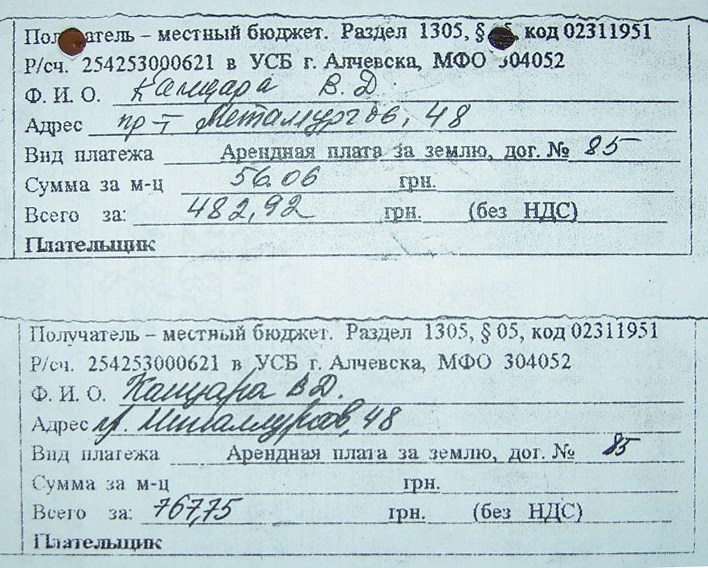 Получатель – местный бюджет. Раздел 1305, § 05, код 02311951
Р/сч. 254253000621 в УСБ г. Алчевска, МФО 304052
Ф. И. О. Канцара В.Д.
Адрес пр-т Металлургов, 48
Вид платежа Арендная плата за землю, дог. № 85
Сумма за м-ц 56.06 грн.
Всего за: 482,92 грн. (без НДС)
Плательщик
Получатель – местный бюджет. Раздел 1305, § 05, код 02311951
Р/сч. 254253000621 в УСБ г. Алчевска, МФО 304052
Ф. И. О. Канцара В.Д.
Адрес пр. Металлургов, 48
Вид платежа Арендная плата за землю, дог. № 85
Сумма за м-ц грн.
Всего за: 767,75 грн. (без НДС)
Плательщик